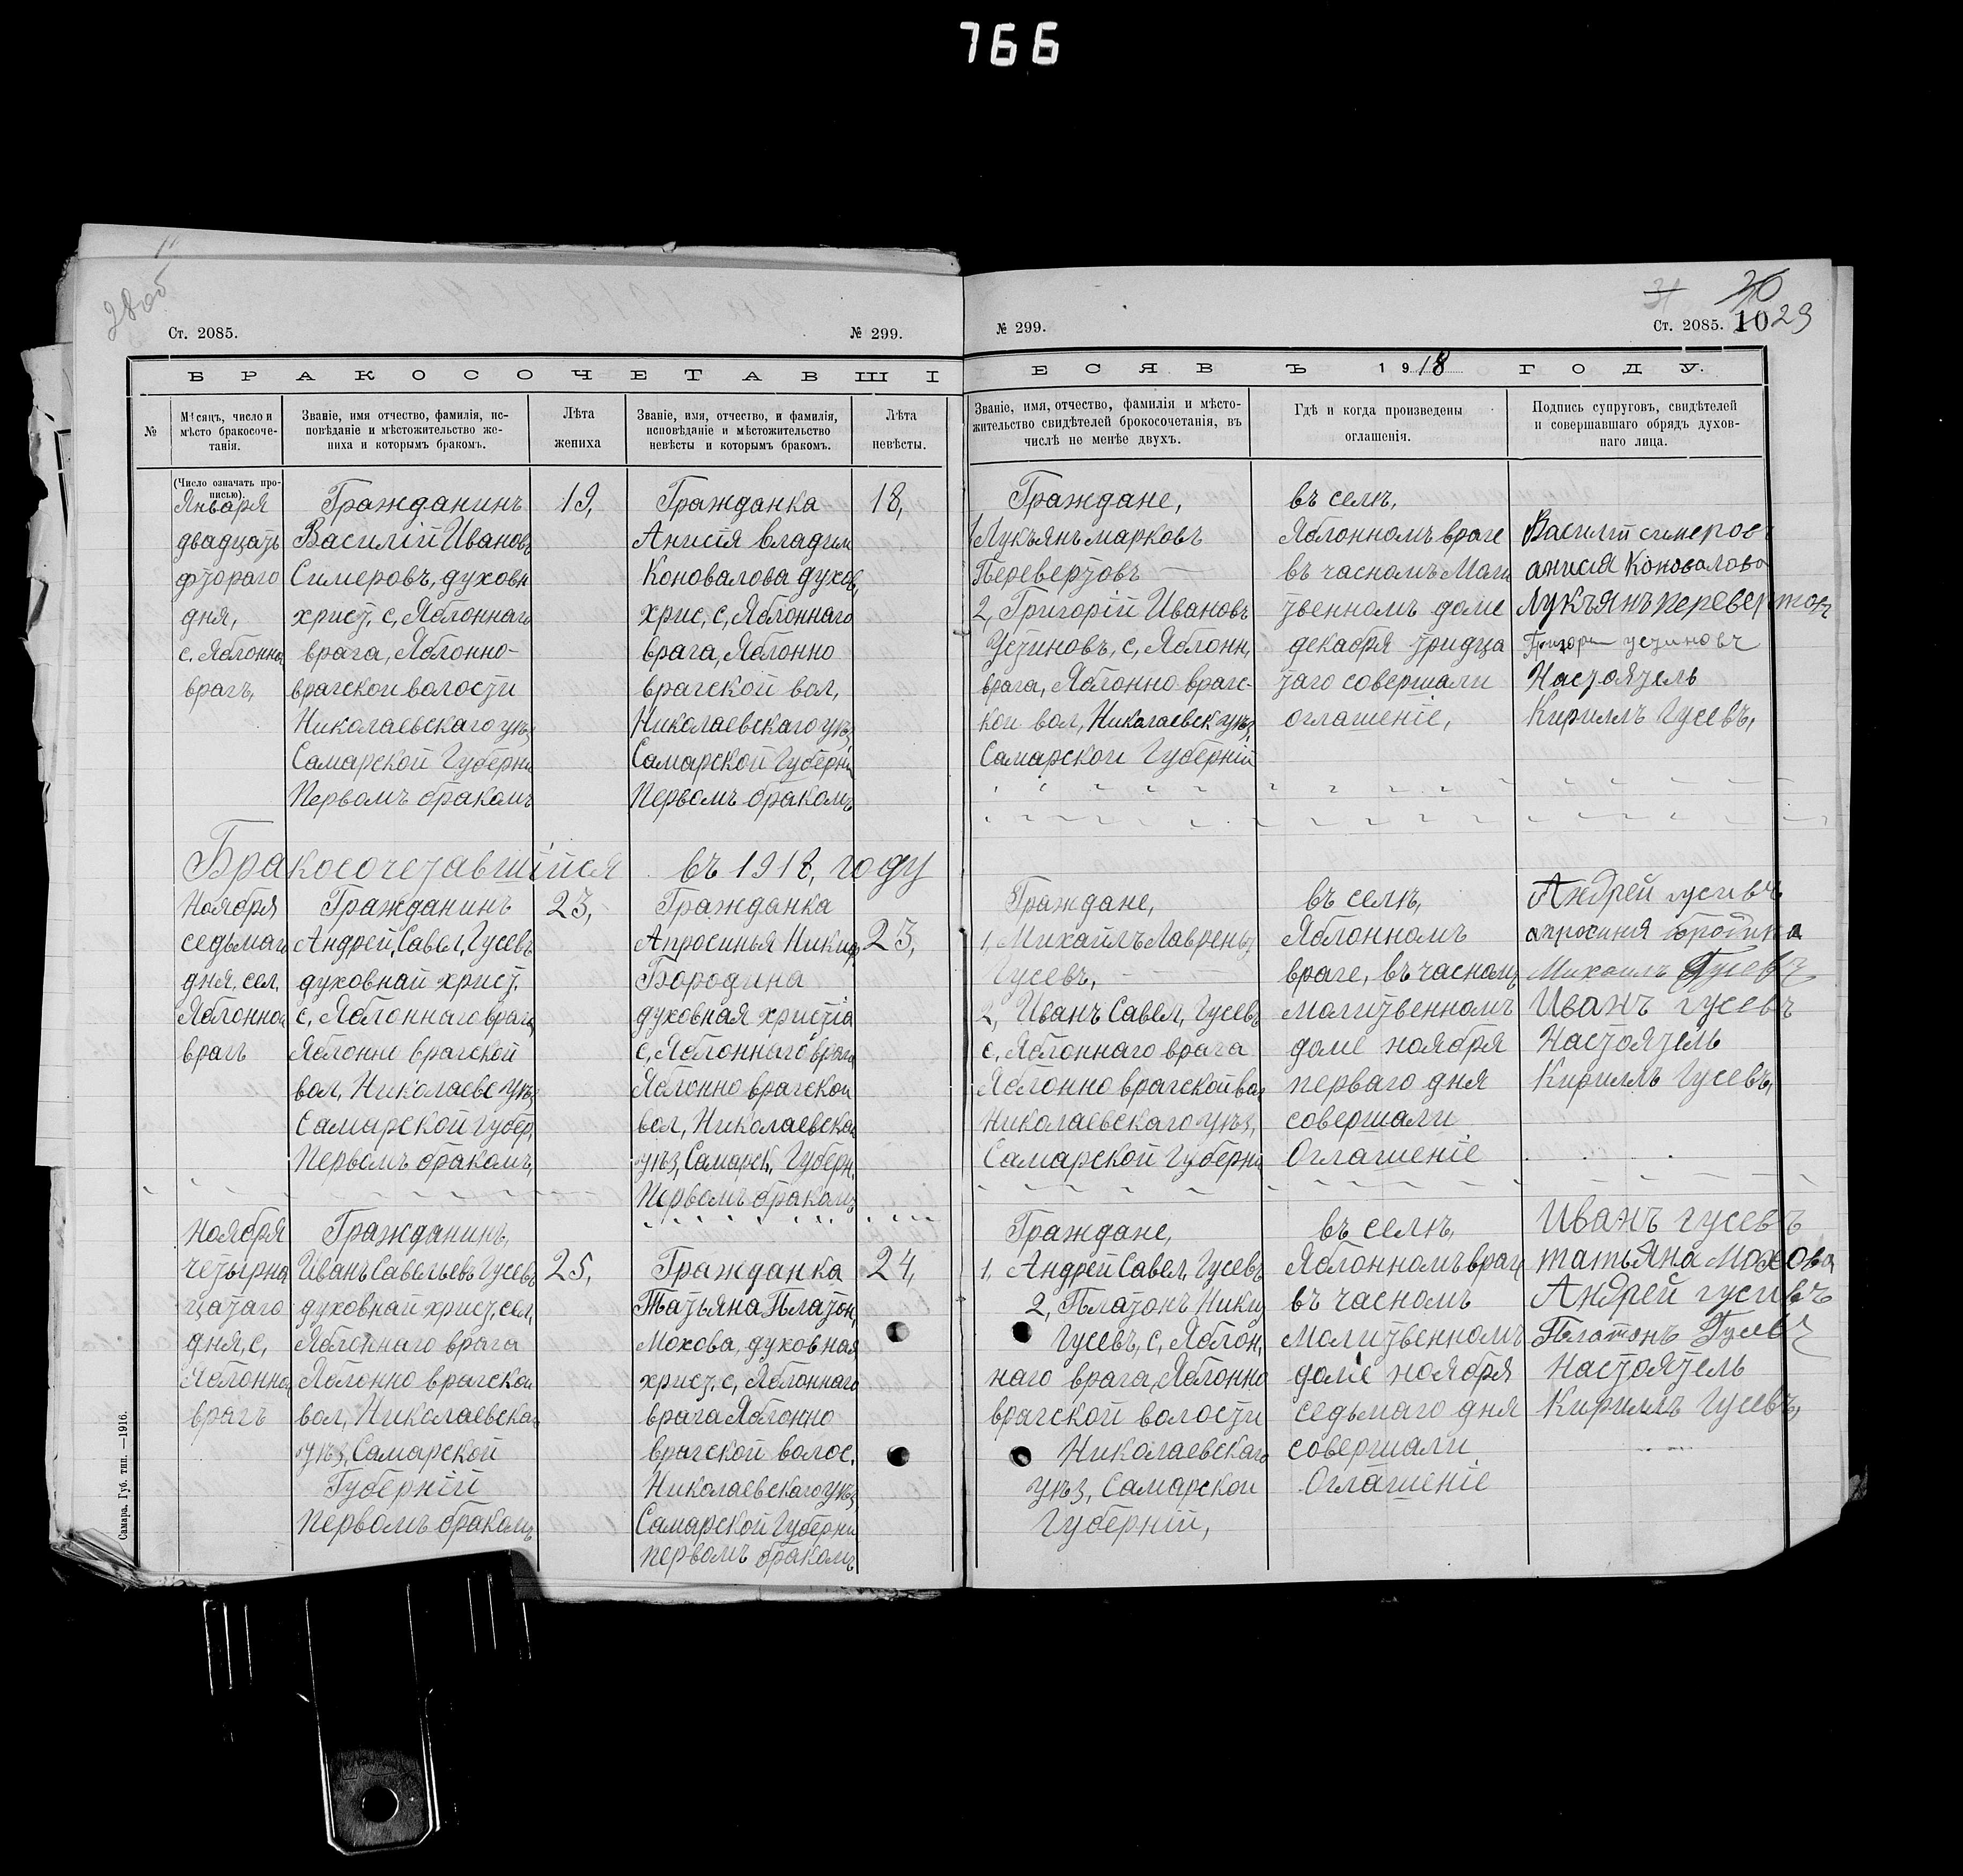 766
28об
Ст. 2085.
№ 299.
БРАКОСОЧЕТАВШІ
№
Мѣсяцъ, число и мѣсто бракосоче-
танія.
Званіе, имя отчество, фамилія, ис-
повѣданіе и мѣстожительство же-
ниха и которымъ бракомъ.
Лѣта
жениха
Званіе, имя, отчество, и фамилія,
исповѣданіе и мѣстожительство
невѣсты и которымъ бракомъ.
Лѣта
невѣсты.
(Число означать про-
писью).
Января
двадцать
фтораго
дня,
с. Яблонны
врагъ,
Гражданинъ
Василій Ивановъ
Симеровъ, духовн
христ, с, Яблоннаго
врага, Яблонно-
врагской волости
Николаевскаго уѣз
Самарской Губерни
Первомъ бракомъ
19,
Гражданка
Анисія Владим
Коновалова духов,
хрис, с, Яблоннаго
врага, Яблонно
врагской вол,
Николаевскаго уѣз
Самарской Губерни
Первомъ бракомъ
18,
Бракосочетавшійся въ 1918, году
Ноября
седьмаго
дня, сел,
Яблонной
врагъ
Гражданинъ
Андрей, Савел, Гусевъ
духовнай христ,
с, Яблоннаго врага
Яблонно врагской
вол, Николаевс уѣз
Самарской Губер,
Первомъ бракомъ,
23,
Гражданка
Апросинья Никиф
Бородина
духовная христіа
с, Яблоннаго врага
Яблонно врагской
вол, Николаевской
уѣз, Самарск, Губерн,
Первомъ бракомъ
23,
Ноября
четырна
цатаго
дня, с,
Яблонно
врагъ
Гражданинъ,
Иванъ Савельевъ Гусевъ
духовнай христ, сел,
Яблоннаго врага
Яблонно врагской
вол, Николаевскаг
уѣз, Самарской
Губерній
Первомъ бракомъ
25,
Гражданка
Татьяна Платон,
Мохова, духовная
христ. с, Яблоннаго
врага Яблонно
врагской волос,
Николаевскаго уѣз
Самарской Губерни
первомъ бракомъ
24,
Самара. Губ. тип. —1916.
№ 299.
31 30
Ст. 2085. 10 29
ЕСЯ ВЪ 1918 ГОДУ.
Званіе, имя, отчество, фамилія и мѣсто-
жительство свидѣтелей брокосочетанія, въ
числѣ не менѣе двухъ.
Гдѣ и когда произведены
оглашенія.
Подпись супруговъ, свидѣтелей
и совершавшаго обрядъ духов-
наго лица.
Граждане,
1 Лукъянъ Марковъ
Перевертовъ
2, Григорій Ивановъ
Устиновъ, с, Яблонн,
врага, Яблонно врагс-
кои вол, Николаевск уѣз,
Самарской Губерній
въ селѣ,
Яблонномъ враге
въ часномъ Мали
твенномъ доме
декабря тридца
таго совершали
оглашеніе,
Василій симеровъ
анисия Коновалова
Лукъянъ перевертовъ
Григори устиновъ
Настоятель
Кириллъ Гусевъ,
Граждане,
1, Михайлъ Лаврень
Гусевъ,
2, Иванъ Савел, Гусевъ
с, Яблоннаго врага
Яблонно врагской вол
Николаевскаго уѣз,
Самарской Губерни
въ селѣ,
Яблонномъ
враге, въ часномъ
молитвенномъ
доме ноября
перваго дня
совершали
Оглашеніе
Андрей гусивъ
апросиния бородина
Михаилъ Гусевъ
Иванъ гусевъ
Настоятель
Кириллъ Гусевъ,
Граждане,
1, Андрей Савел, Гусевъ
2, Платонъ Ники
Гусевъ, с, Яблон,
наго врага, Яблонно
врагской волости
Николаевскаго
уѣз, Самарской
Губерній,
въ селѣ,
Яблонномъ враг
въ часномъ
Молитвенномъ
доме ноября
седьмаго дня
совершали
Оглашеніе
Иванъ гусевъ
татьяна Мохова
Андрей гусивъ
Платонъ Гусевъ
Настоятель
Кириллъ Гусевъ,